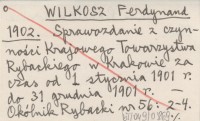 WILKOSZ Ferdynand
1902. Sprawozdanie z czyn-
ności Krajowego Towarzystwa
Rybackiego w Krakowie za
czas od 1 stycznia 1901 r.
do 31 grudnia 1901 r. —
Okólnik Rybacki nr 56: 2-4.